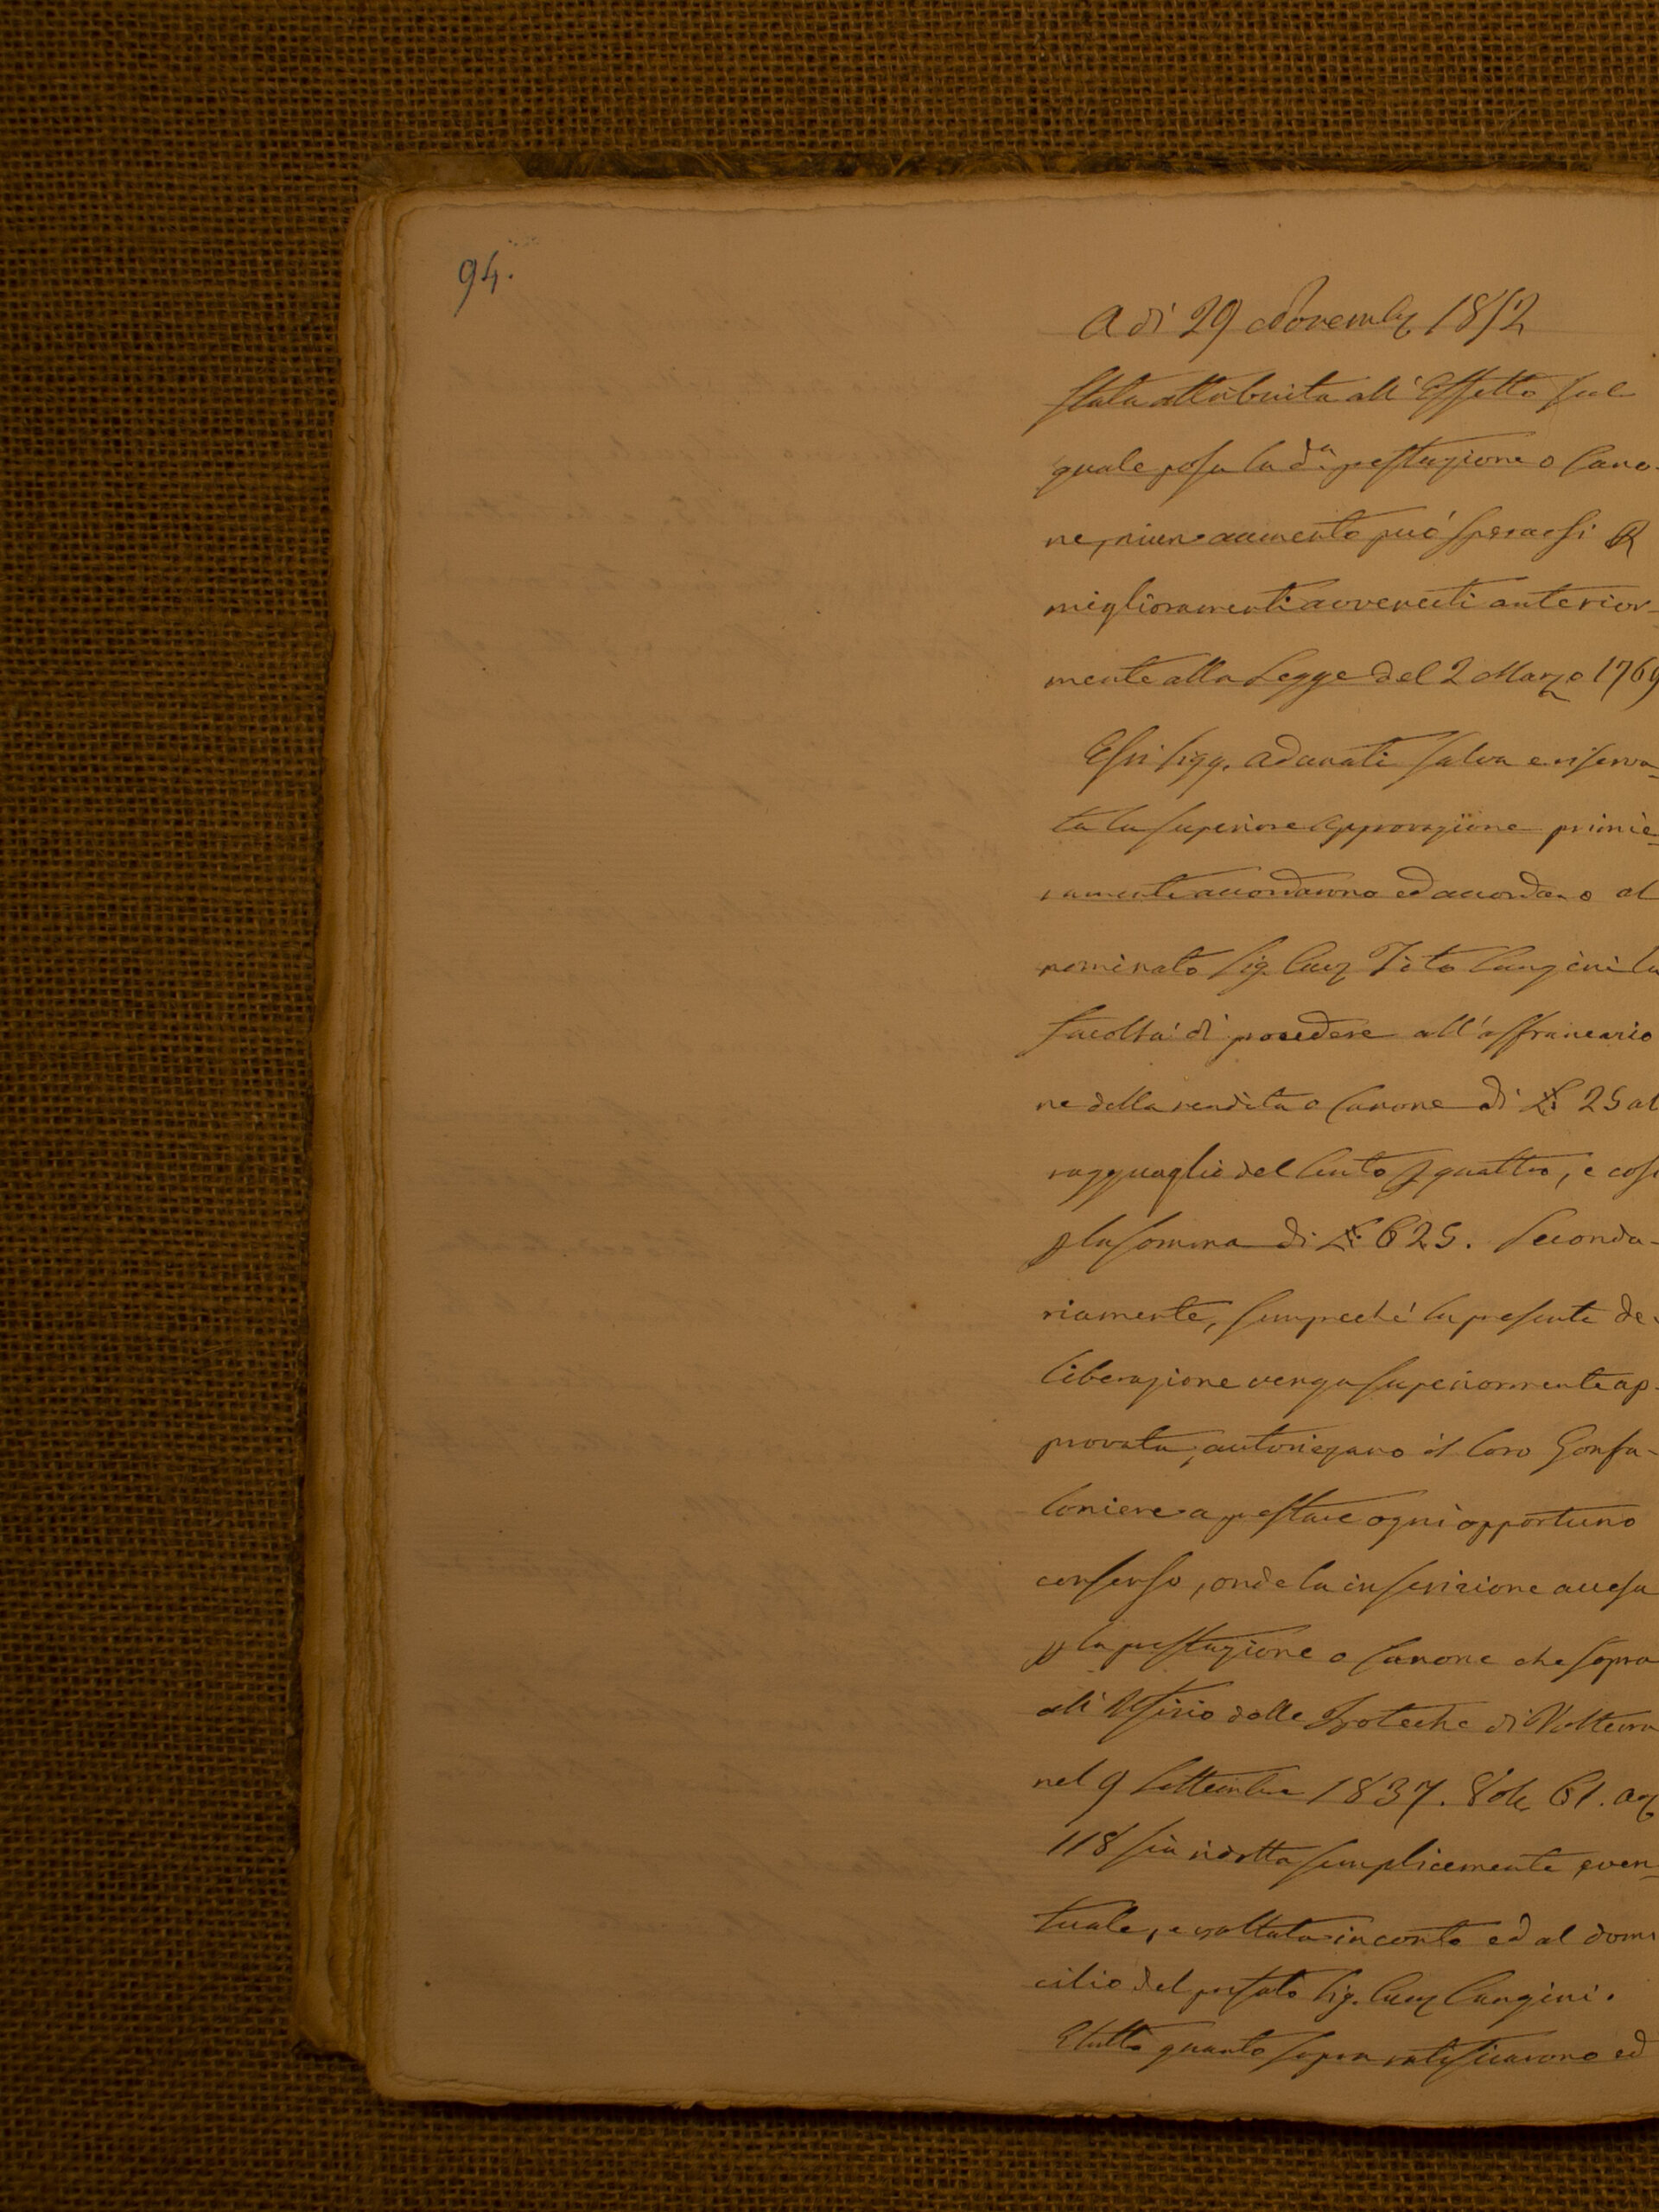 94.
A di 29 Novembre 1852
stata attribuita all' Effetto sul
quale posa la da. prestazione o Cano-
ne, niun aumento può sperarsi per
miglioramenti avvenuti anterior-
mente alla Legge del 2 Marzo 1769
Essi Sigg. Adunati salva e riserva-
ta la superiore approvazione primie-
ramente accordarono ed accordano al
nominato Sig. Tito la
facoltà di procedere all' affrancazio
ne della rendita o Canone di £ 25 al
ragguaglio del Cento per quattro, e così
p la somma di £ 625. Seconda-
riamente, sempreché la presente de-
liberazione venga superiormente ap-
provata, autorizzano il loro Gonfa-
loniere a prestare ogni opportuno
consenso, onde la inscrizione accesa
p la prestazione o Canone che sopra
all' Ufizio delle Ipoteche di Volterra
nel 9 Settembre 1837. Vol. 61. art
118 sia ridotta semplicemente even-
tuale, e voltata in conto ed al domi
cilio del prefato Sig.
E tutto quanto sopra ratificarono ed